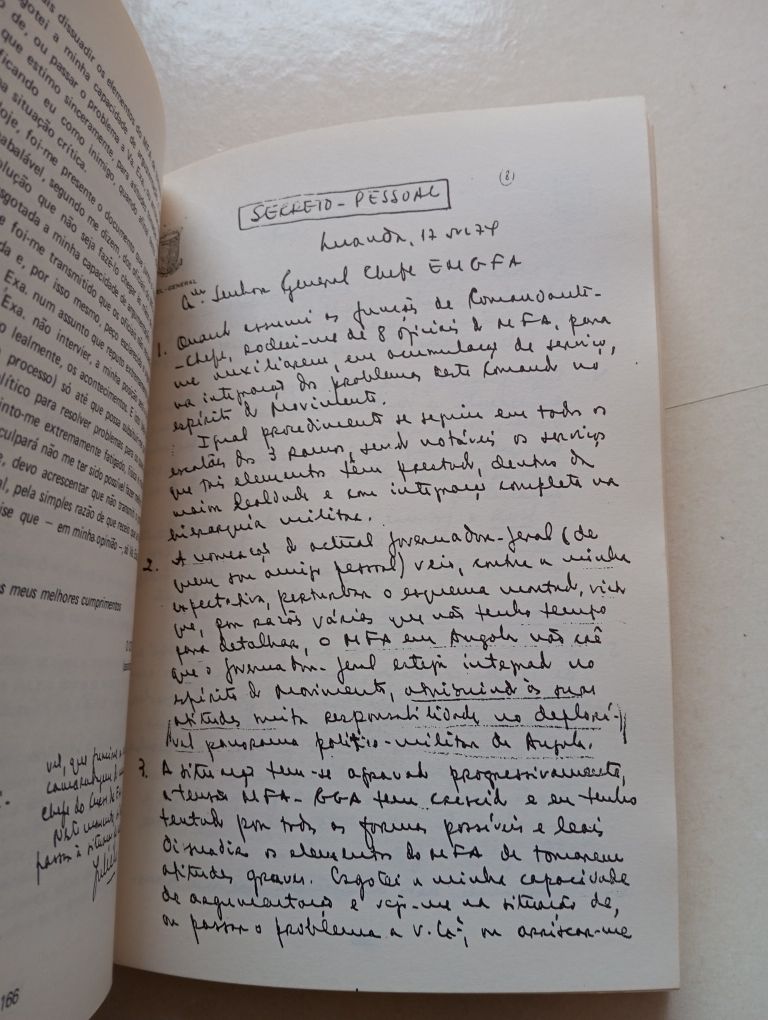 ais dissuadir os elementos do MFA
gotei a minha capacidade de
o de, ou passar o problema a Va. Exa.
que estimo sinceramente, para atitudes
ficando eu como inimigo, quando
na situação crítica.
hoje, foi-me presente o documento que
abalável, segundo me dizem, dos oficiais
olução que não seja fazê-lo chegar
sgotada a minha capacidade de argumentação
e foi-me transmitido que os oficiais
da e, por isso mesmo, peço
Exa. num assunto que reputo extremamente
Exa. não intervier, a minha posição
o lealmente, os acontecimentos. E
processo) só até que possa
lítico para resolver problemas
into-me extremamente fatigado.
culpará não me ter sido possível
e, devo acrescentar que não transmiti
al, pela simples razão de que receio
ise que – em minha opinião – só
s meus melhores cumprimentos
vel, que
Chefe do
166
(8)
SECRETO - PESSOAL
Luanda, 17 JUL 74
EL-GENERAL
Senhor General Chefe EMGFA
1. Quando assumi as funções de Comandante-
-Chefe, rodeei-me de 8 oficiais do MFA, para
me auxiliarem, em acumulação de serviço,
na integração dos problemas deste Comando no
espírito do Movimento.
Igual procedimento se seguiu em todos os
escalões dos 3 Ramos, sendo notáveis os serviços
que tais elementos têm prestado, dentro da
maior lealdade e com integração completa na
hierarquia militar.
2. A nomeação do actual Governador-Geral (de
quem sou amigo pessoal) veio, contra a minha
expectativa, perturbar o esquema montado, visto
que, por razões várias que não tenho tempo
para detalhar, o MFA em Angola não crê
que o Governador-Geral esteja integrado no
espírito do Movimento, atribuindo às suas
atitudes muita responsabilidade no deplorá-
vel panorama político-militar de Angola.
3. A situação tem-se agravado progressivamente,
a tensão MFA-GGA tem crescido e eu tenho
tentado por todas as formas possíveis e leais
dissuadir os elementos do MFA de tomarem
atitudes graves. Esgotei a minha capacidade
de argumentação e vejo-me na situação de,
ou passar o problema a V. Exª, ou arriscar-me